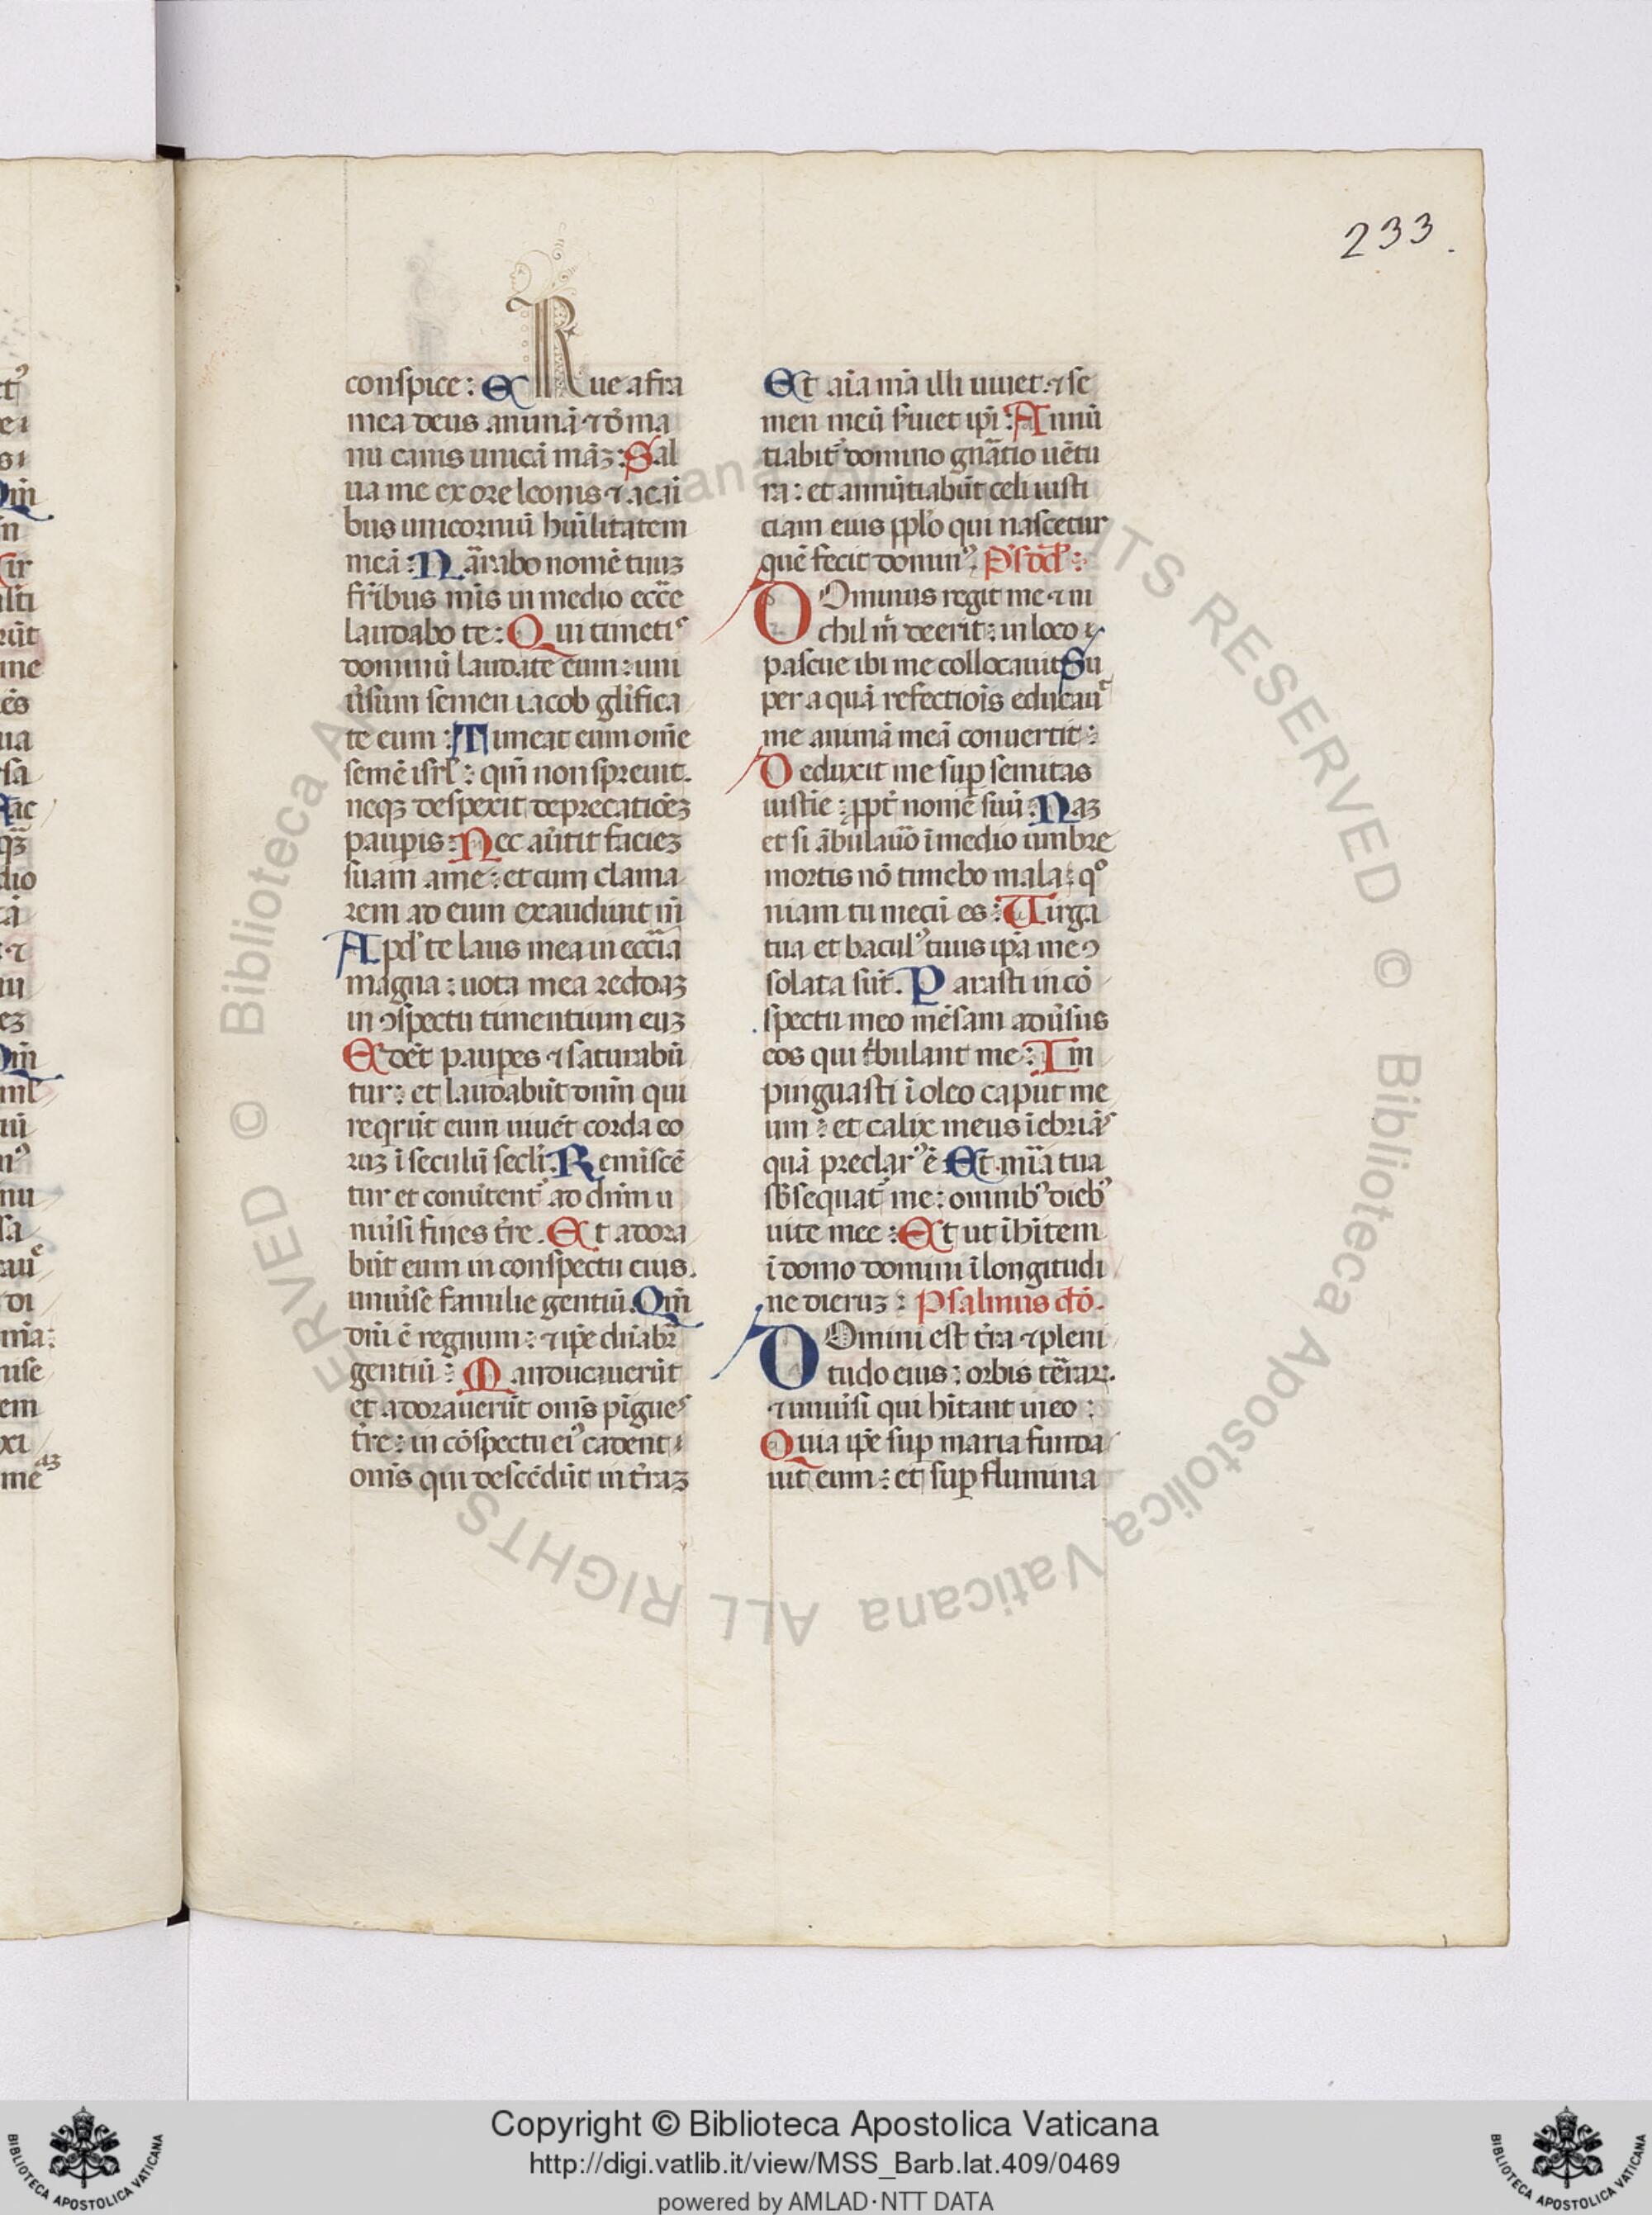 233.
conspice: Erue a fra
mea deus animā ⁊ đ ma
nu canis unicā māꝫ: Sal
ua me ex ore leonis ⁊ a cȧi
bus unicornuū hūilitatem
meā: Nārabo nomē tuūꝫ
fr̄ibus mīs in medio ecc̄e
laudabo te: Qui timetis
dominū laudate eum: uni
ūsum semen iacob gl̄ifica
te eum: Timeat eum om̄e
semē isrl̄: qm̄ non spreuit.
neqꝫ despexit deprecatiōeꝫ
paup̄is: Nec aūtit facieꝫ
suam a me: et cum clama
rem ad eum exaudiuit m̄
Apd̄ te laus mea in ecc̄ia
magna: uota mea reddaꝫ
in ꝯspectu timentium euꝫ
Edēt paup̄es ⁊ saturabū
tur: et laudabūt dn̄m qui
reqrūt eum uiuēt corda eo
ruꝫ ī seculū secl̄i. Remīscē
tur et conūtent᷑ ad dn̄m u
niūsi fines tr̄e. Et adora
būt eum in conspectu eius.
uniūse familie gentiū. Qm̄
dn̄i ē regnum: ⁊ ip̄e dn̄abr̄
gentiū: Manducauerūt
et adorauerūt om̄s pīgues
tr̄e: in cōspectu eiꝰ cadent
om̄s qui descēdūt in tr̄aꝫ
Et aīa mīa illi uiuet. ⁊ se
men meū s̄uiet ip̄i: Annū
tiabit᷑ domino gn̄atio uētu
ra: et annūtiabūt celi iusti
ciam eius pp̄lo qui nascetur
quē fecit dominꝰ. P̄s dd̄:
DOminus regit me ⁊ ni
chil m̄ deerit: in loco
pascue ibi me collocauit Su
per aquā refectiōis educaū
me animā meā conuertit:
Deduxit me sup̄ semitas
iustīe: pp̄t nomē suū: Naꝫ
et si ābulaūo ī medio umbre
mortis nō timebo mala: qº
niam tu mecū es: Uirga
tua et baculꝰ tuus ip̄a me ꝯ
solata sūt. Parasti in cō
spectu meo mēsam aduūsus
eos qui t̄bulant me: Im
pinguasti ī oleo caput me
um: et calix meus īebriās
quā preclarꝰ ē Et mīa tua
sb̄sequat᷑ me: omnibꝰ diebꝰ
uite mee: Et ut īhītem
ī domo domini ī longitudi
ne dieruꝫ: Psalmus dd̄.
DOmini est tr̄a ⁊ pleni
tudo eius: orbis tērar.
⁊ uniūsi qui hītant in eo:
Quia ip̄e sup̄ maria funda
uit eum: et sup̄ flumina
Copyright © Biblioteca Apostolica Vaticana
http://digi.vatlib.it/view/MSS_Barb.lat.409/0469
powered by AMLAD·NTT DATA
BIBLIOTECA APOSTOLICA VATICANA
BIBLIOTECA APOSTOLICA VATICANA
© Biblioteca Apostolica Vaticana ALL RIGHTS RESERVED © Biblioteca Apostolica Vaticana ALL RIGHTS RESERVED